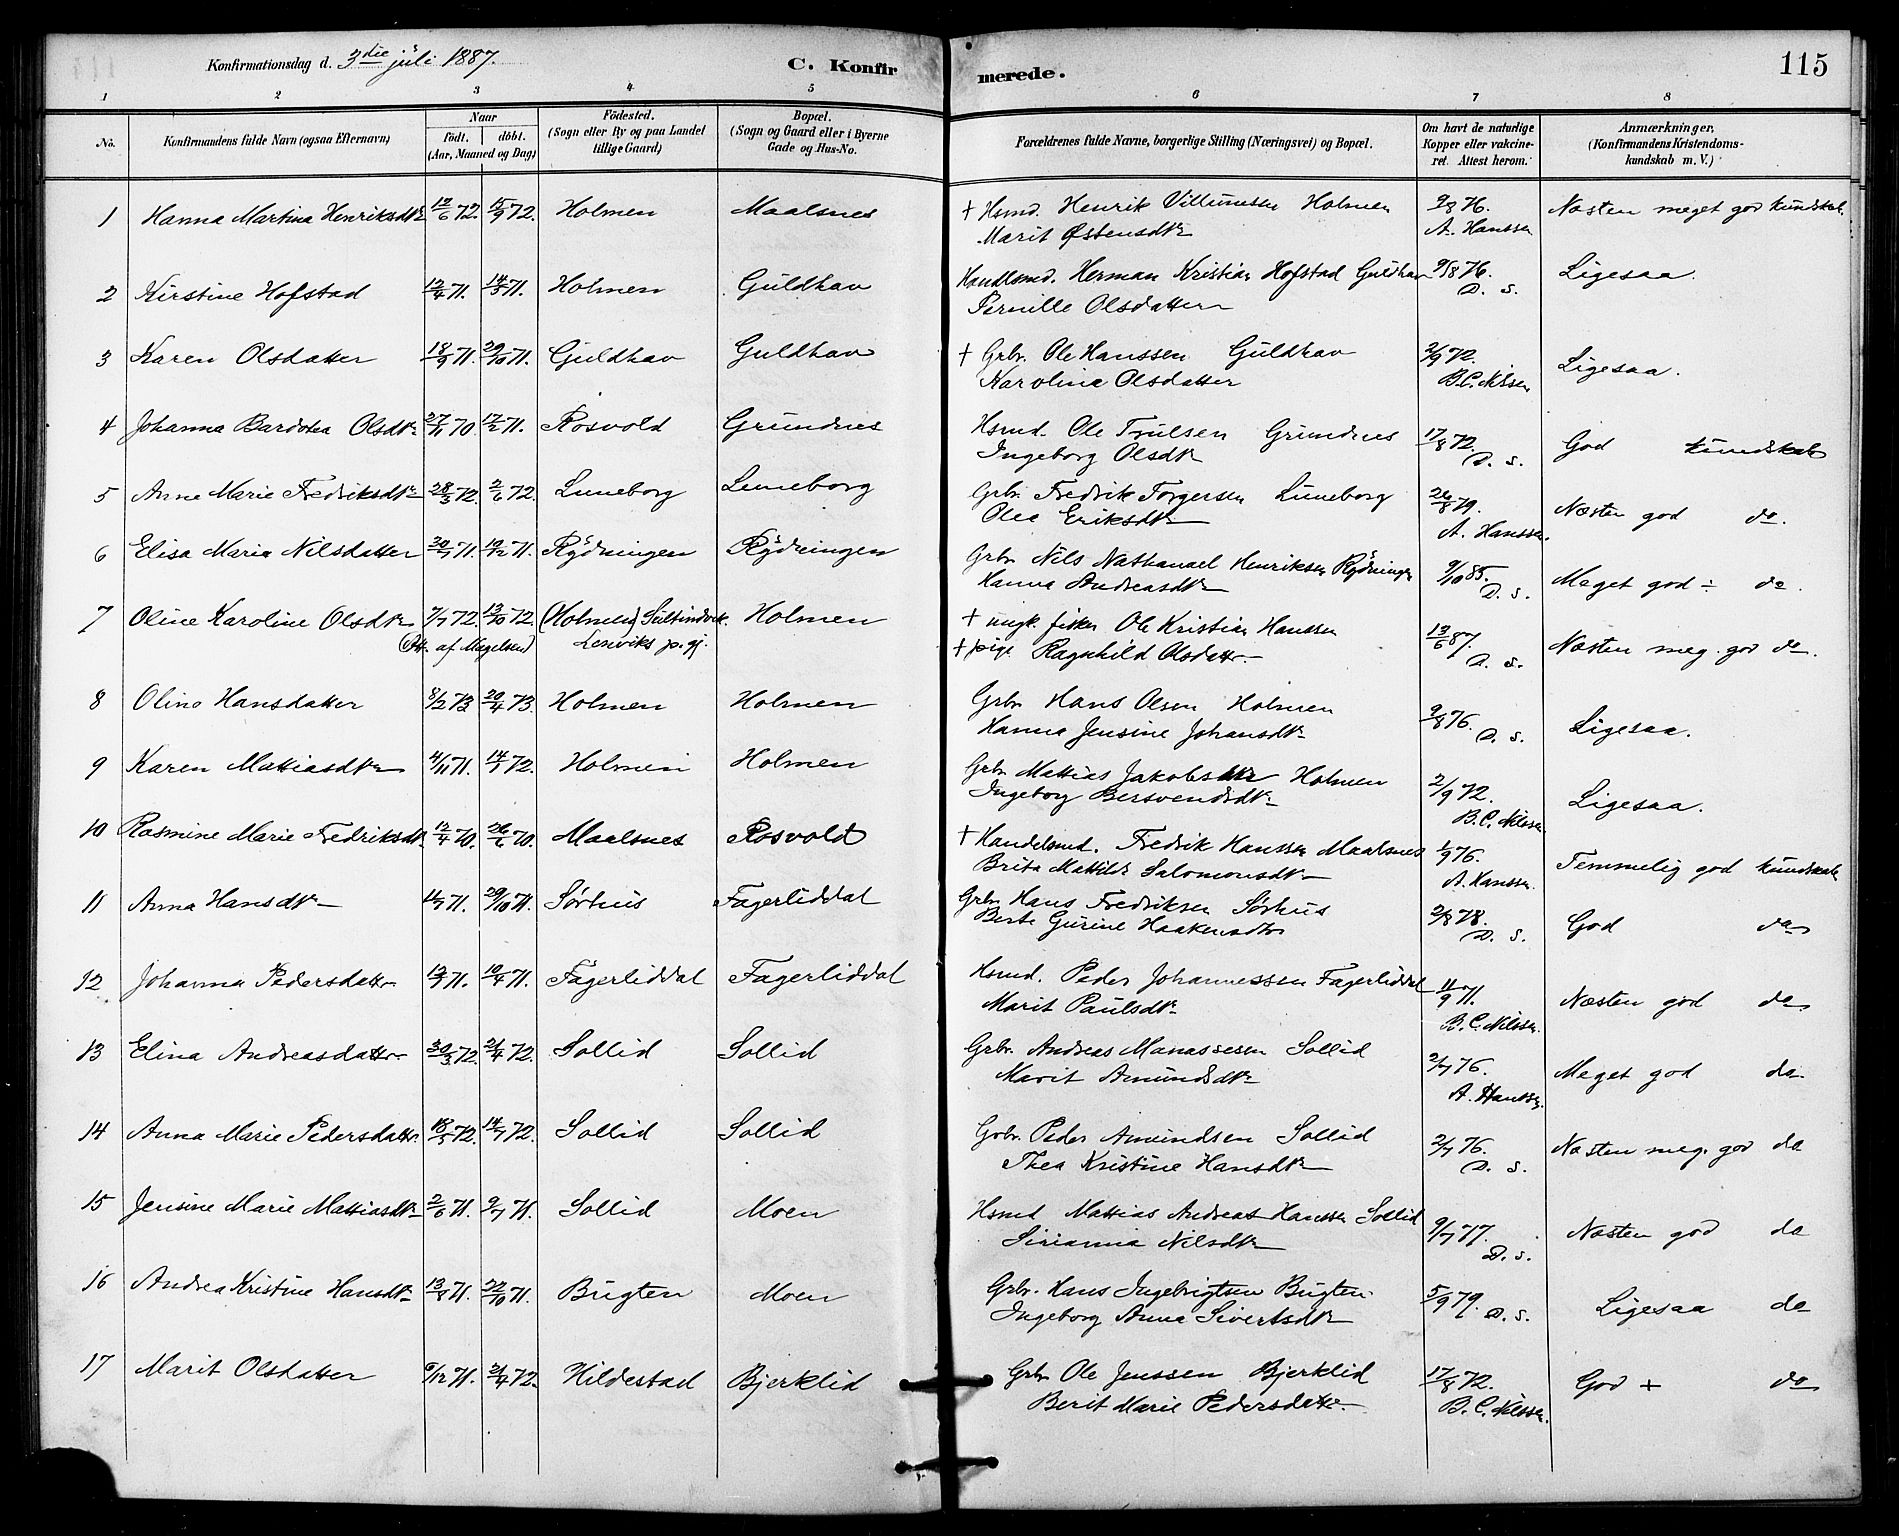 Konfirmationsdag d. 3die juli 1887.
C. Konfirmerede.
115
1 2 3 4 5 6 7 8
No. Konfirmandens fulde Navn (ogsaa Efternavn) Naar födt. döbt. (Aar, Maaned og Dag) Födested. (Sogn eller By og paa Landet tillige Gaard) Bopæl. (Sogn og Gaard eller i Byerne Gade og Hus-No. Forældrenes fulde Navne, borgerlige Stilling (Næringsvei) og Bopæl. Om havt de naturlige Kopper eller vakcineret. Attest herom. Anmærkninger. (Konfirmandens Kristendomskundskab m. V.)
1 Hanna Martina Henriksdtr 12/6 72. 15/9 72. Holmen Maalsnes + Hsmd. Henrik Villumsen Holmen 9/8 76. Næsten meget god kundskab.
Marit Østensdtr A. Hanssen
2 Kirstine Hofstad 12/4 71. 14/5 71. Holmen Guldhav Handlsmd. Herman Kristian Hofstad Guldhav 9/8 76. Ligesaa.
Pernille Olsdatter D. s.
3 Karen Olsdatter 18/9 71. 29/10 71. Guldhav Guldhav + Grbr. Ole Hanssen Guldhav 2/9 72. Ligesaa.
Karolina Olsdatter B.C. Nilssen
4 Johanna Bardotea Olsdtr 27/11 70 12/2 71. Rosvold Grundnes Hsmd. Ole Trulsen Grundnes 17/8 72. God kundskab
Ingeborg Olsdtr D. s.
5 Anne Marie Fredriksdtr 28/3 72. 2/6 72. Luneborg Luneborg Grbr. Fredrik Torgersen Luneborg 26/8 79. Næsten god do.
Olea Eriksdtr A. Hanssen.
6 Elisa Maria Nilsdatter 30/9 71. 10/12 71. Rydningen Rydningen Grbr. Nils Nathanael Henriksen Rydningen 9/10 85. Meget god ÷ do.
Hanna Andreasdtr D. s.
7 Oline Karoline Olsdtr 7/7 72. 13/10 72. (Holmen) Sultindvik. Holmen + ungk. fisker Ole Kristian Hanssen 13/6 87. Næsten meg. god do.
(Att. af Magelsen) Lenviks p.gj. + pige Ragnhild Olsdatter D. s.
8 Olina Hansdatter 8/2 73 20/4 73. Holmen Holmen Grbr. Hans Olsen Holmen 9/8 76. Ligesaa.
Hanna Jensine Johansdtr D. s.
9 Karen Mattiasdtr 4/11 71. 14/1 72. Holmen Holmen Grbr. Mattias Jakobsen Holmen 2/9 72. Ligesaa.
Ingeborg Bersvendsdtr B.C. Nilssen
10 Rasmine Marie Fredriksdtr. 12/4 70. 26/6 70. Maalsnes Rosvold + Handelsmd. Fredrik Hanssen Maalsnes 1/9 76. Temmelig god kundskab
Brita Mattilde Salomonsdtr A. Hanssen.
11 Anna Hansdtr 71. 29/10 71. Sørhus Fagerliddal Grbr. Hans Fredriksen Sørhus 2/8 78. God do
Berte Gurine Haakensdtr D. s.
12 Johanna Pedersdatter 71. 10/4 71. Fagerliddal Fagerliddal Hsmd. Peder Johannessen Fagerliddal 11/9 71. Næsten god do
Marit Paulsdtr B.C. Nilssen.
13 Elina Andreasdatter 30/3 72. 21/4 72. Sollid Sollid Grbr. Andreas Manassesen Sollid 2/7 76. Meget god do
Marit Amundsdtr A. Hanssen.
14 Anna Marie Pedersdatter 18/5 72. 14/7 72. Sollid Sollid Grbr. Peder Amundsen Sollid 2/7 76. Næsten meg. god do
Thea Kristine Hansdtr D. s.
15 Jensine Marie Mattiasdtr 2/6 71. 9/7 71. Sollid Moen Hsmd Mattias Andreas Hanssen Sollid 9/7 77. Næsten god do
Sirianna Nilsdtr D. s.
16 Andrea Kristine Hansdtr 13/8 71. 22/10 71. Bugten Moen Grbr. Hans Ingebrigtsen Bugten 5/9 79. Ligesaa do
Ingeborg Anna Sivertsdtr D. s.
17 Marit Olsdatter 6/12 71. 21/4 72. Hildestad Bjerklid Grbr Ole Jenssen Bjerklid 17/8 72. God + do
Berit Marie Pedersdatter B.C. Nilssen.